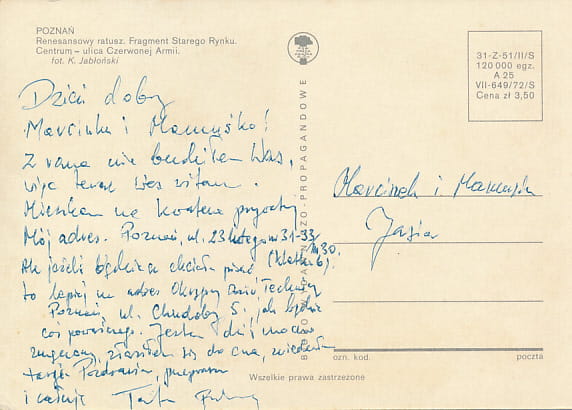 POZNAŃ
Renesansowy ratusz. Fragment Starego Rynku.
Centrum – ulica Czerwonej Armii.
fot. K. Jabłoński
31-Z-51/II/S
120 000 egz.
A 25
VII-649/72/S
Cena zł 3,50
Dzień dobry
Marcinku i Mamusko!
Z rana nie budziłem Was,
więc teraz Was witam.
Mieszkam na kwaterze prywatnej
Mój adres. Poznań, ul. 23 lutego nr 31-33
m 30.
Ale jeżeli będziecie chcieli pisać (klatka 6)
to lepiej na adres
Poznań, ul. Chudoby 5. jak będzie
coś poważnego. Jestem dziś mocno
zmęczony, się do
Pozdrawiam,
i całuję Tata
Marcinek i Mamusia
Jasia
ozn. kod. poczta
Wszelkie prawa zastrzeżone